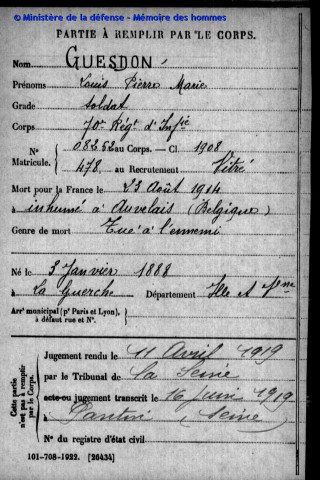 © Ministère de la défense - Mémoire des hommes
PARTIE À REMPLIR PAR LE CORPS.
Nom GUESDON
Prénoms Louis Pierre Marie
Grade Soldat
Corps 70e Régt d'Infie
N° 08252 au Corps. — Cl. 1908
Matricule. 478 au Recrutement Vitré
Mort pour la France le 23 Août 1914
à inhumé à Auvelais (Belgique)
Genre de mort Tué à l'ennemi
Né le 3 Janvier 1888
à La Guerche Département Ille et Vne
Arrt municipal (pr Paris et Lyon),
à défaut rue et N°.
Cette partie
n'est pas à remplir
par le Corps.
Jugement rendu le 11 Avril 1919
par le Tribunal de La Seine
acte ou jugement transcrit le 16 Juin 1919
à Pantin (Seine)
N° du registre d'état civil
101-708-1922. [26434]